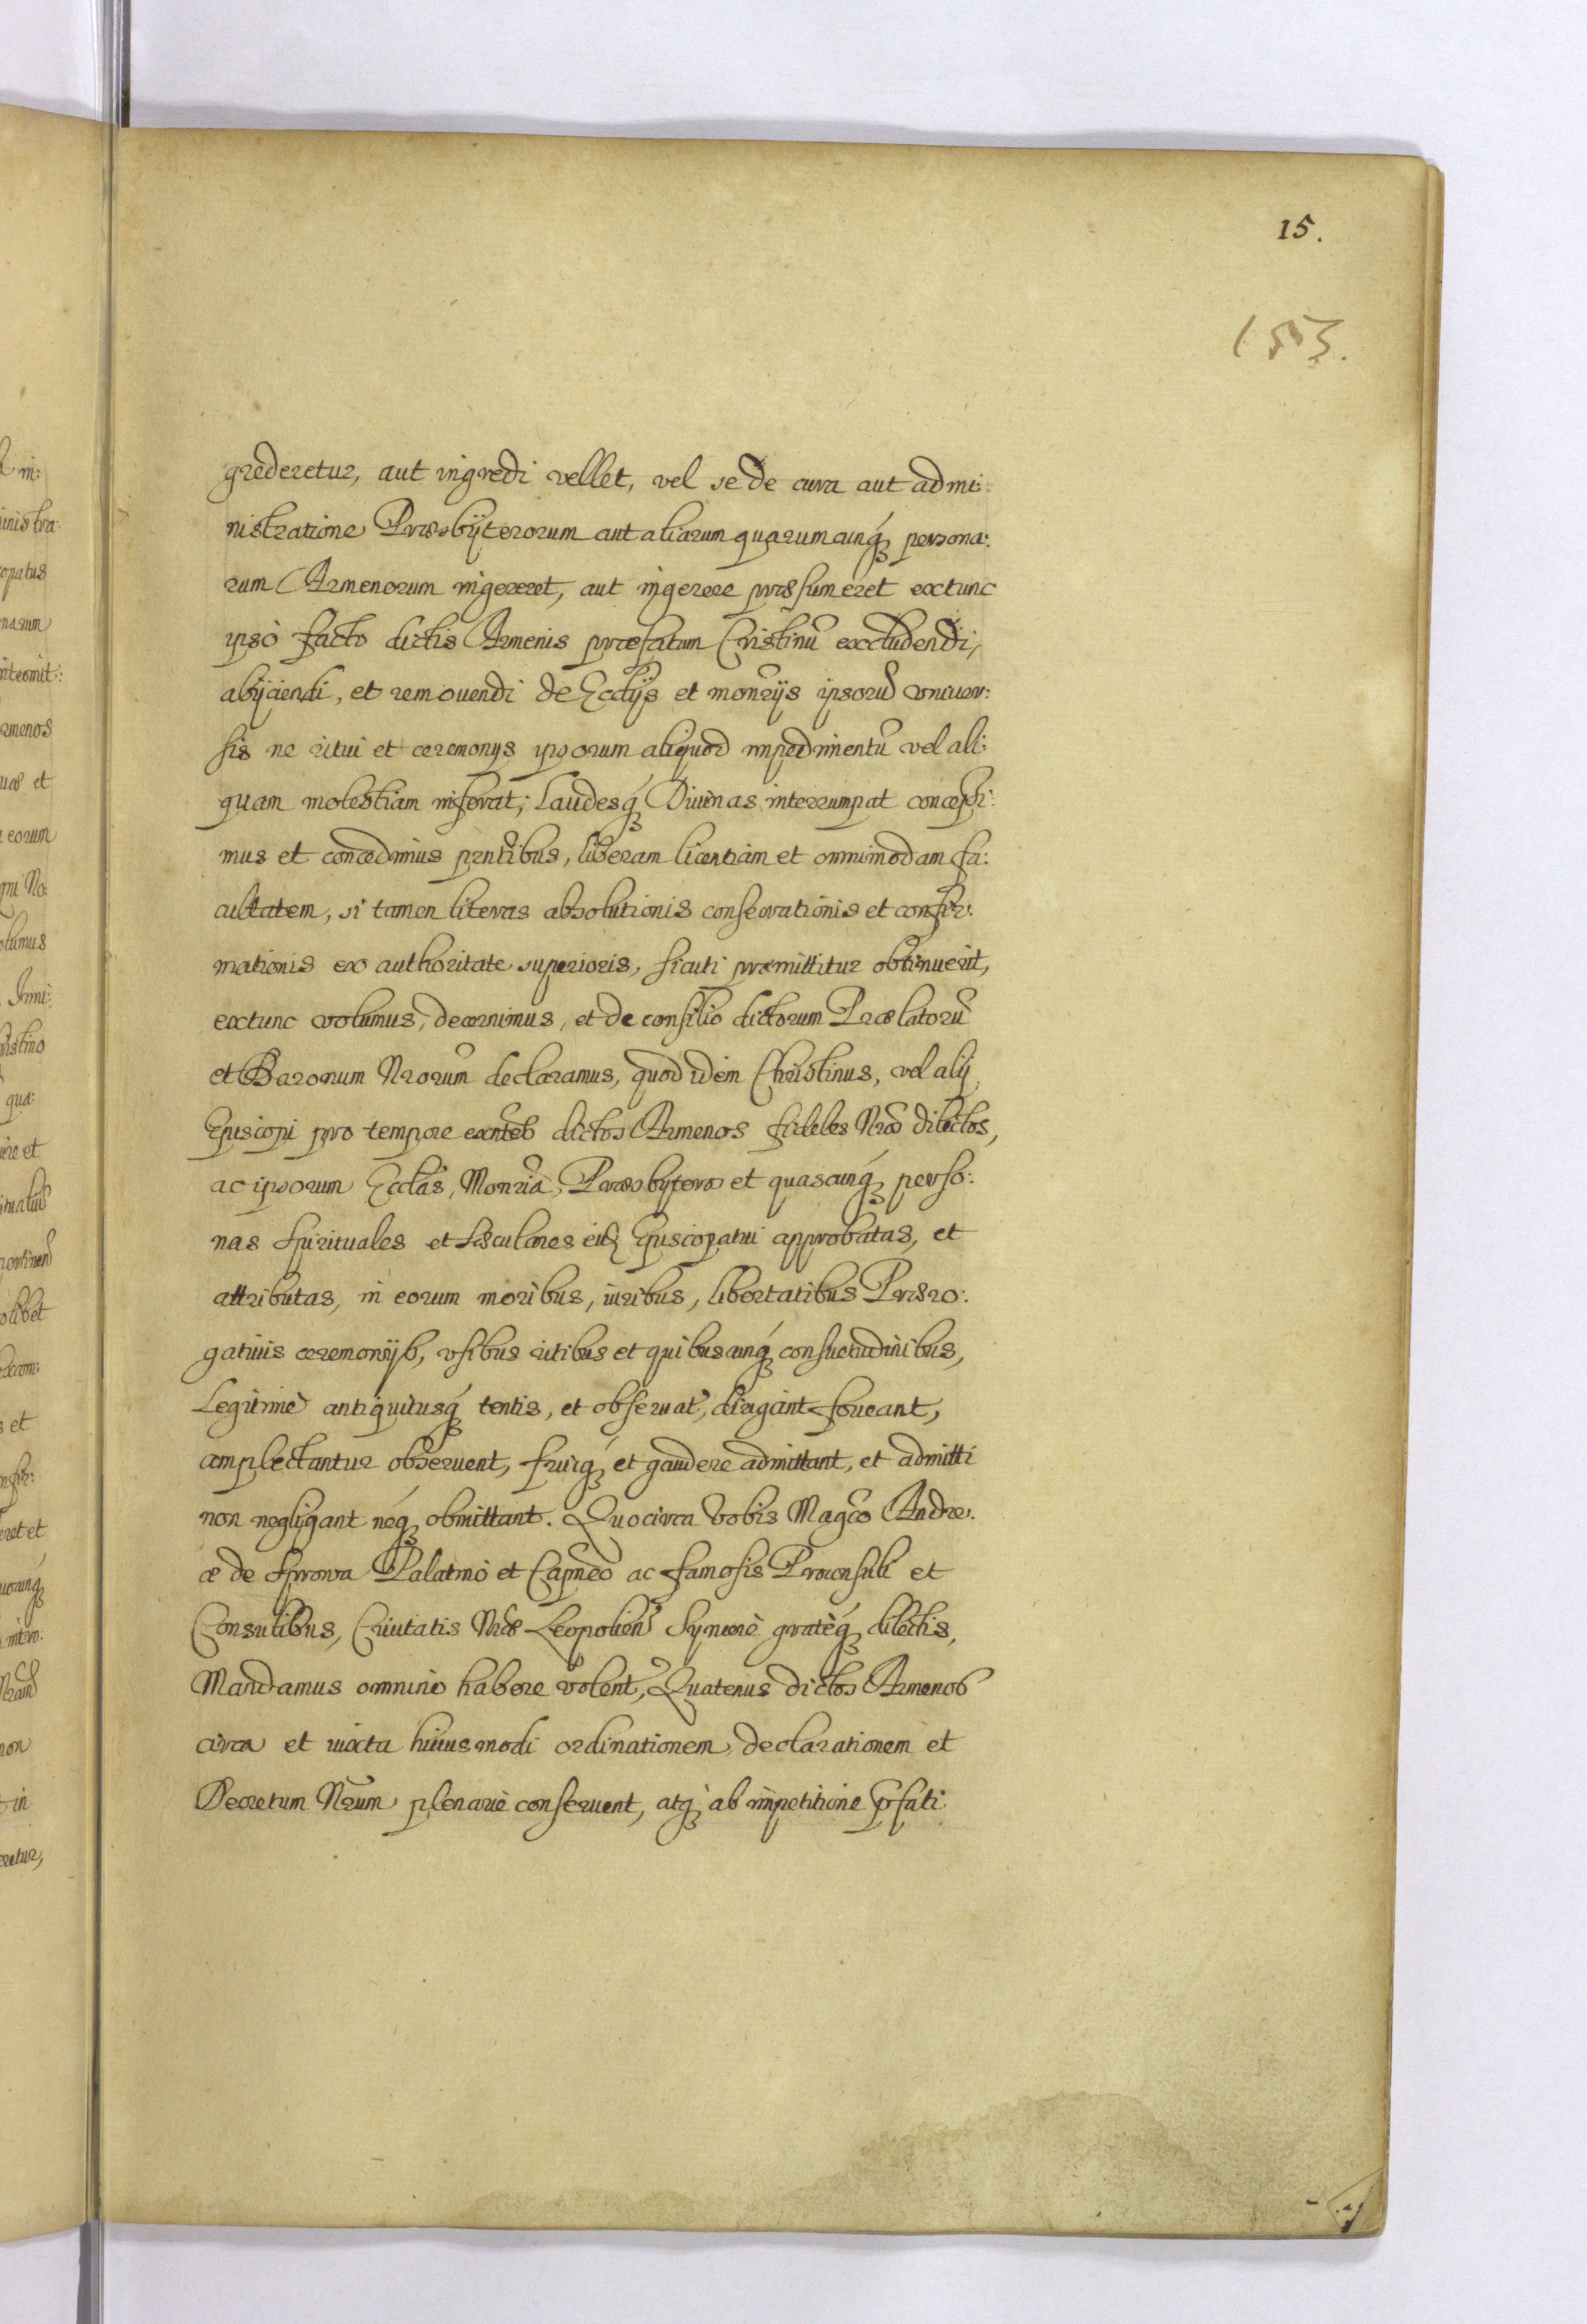 15.
153.
grederetur, aut ingredi vellet, vel se de cura aut admi:
nistratione Præsbÿterorum aut aliarum quarumcunq́ꝫ persona:
rum Armenorum ingereret, aut ingerere præsumeret extunc
ipsò facto dictis Armenis præfatum Cristinũ excludendi,
abÿciendi, et remouendi de Eccl̃ÿs et mon̄rÿs ipsorũ vniuer:
sis ne ritui et ceremonijs ipsorum aliquod impedimentũ vel ali:
quam molestiam inferat, Laudesq́ꝫ Diuinas interrumpat concessi:
mus et concedimus pnt̃ibus, liberam licentiam et omnimodam fa:
cultatem, si tamen literas absolutionis conseorationis et confir:
mationis ex authoritate superioris, sicuti præmittitur obtinuerit,
extunc volumus, decernimus, et de consilio dictorum Prælatorũ
et Baronum Nr̃orum declaramus, quod idem Christinus, vel alÿ
Episcopi pro tempore exñtes dictos Armenos fideles Nr̃os dilectos,
ac ipsorum Eccl̃as, Mon̄ria, Præsbyteros et quascunq́ꝫ perso:
nas spirituales et sæculares eid̃ Episcopatui approbatas, et
attributas, in eorum moribus, iuribus, libertatibus Præro:
gatiuis ceremonÿs, vsibus ritibus et quibuscunq́ꝫ consuetudinibus,
Legitimè antiquitusq́ꝫ tentis, et obseruat̃, dirigant foueant,
amplectantur obseruent, fruiq́ꝫ et gaudere admittant, et admitti
non negligant neq́ꝫ obmittant. Quocirca Vobis Magc̃o Andre:
æ de Sprowa Palatino et Capneo ac famosis Proconsuli et
Consulibus, Ciuitatis Nr̃æ Leopolien̄ Syncerè gratèq́ꝫ dilectis,
Mandamus omnino habere volent̃, Quatenus dictos Armenos
circa et iuxta huiusmodi ordinationem, declarationem et
Decretum Nr̃um plenariè conseruent, atq́ꝫ ab impetitione p̃fati